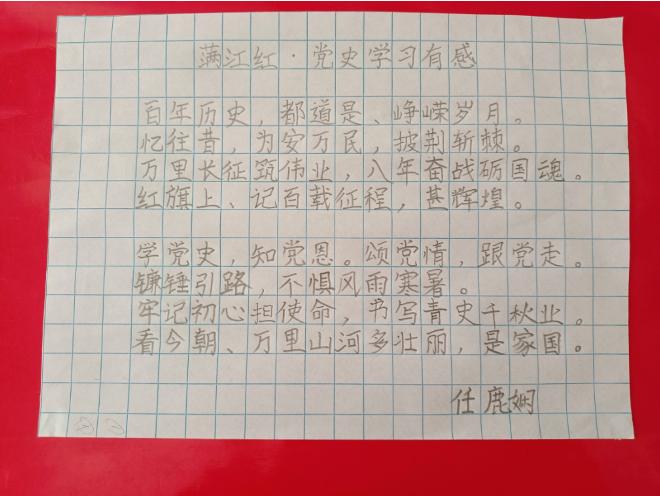 满江红·党史学习有感
百年历史，都道是、峥嵘岁月。
忆往昔，为安万民，披荆斩棘。
万里长征筑伟业，八年奋战砺国魂。
红旗上、记百载征程，甚辉煌。
学党史，知党恩。颂党情，跟党走。
镰锤引路，不惧风雨寒暑。
牢记初心担使命，书写青史千秋业。
看今朝、万里山河多壮丽，是家国。
任鹿娴